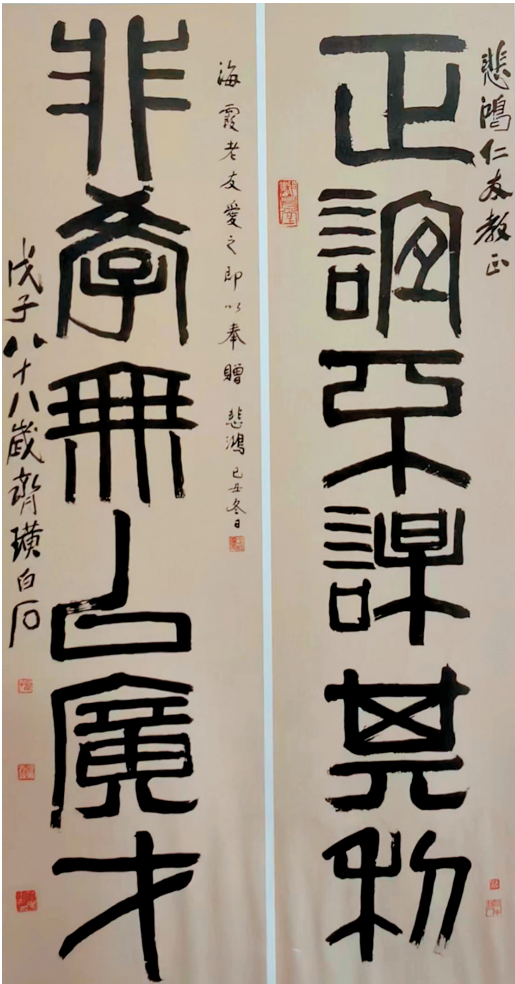 悲鴻仁友教正
正誼不謀其利
海霞老友愛之即以奉贈 悲鴻 己丑冬日
非學無以廣才
戊子八十八歲齊璜白石